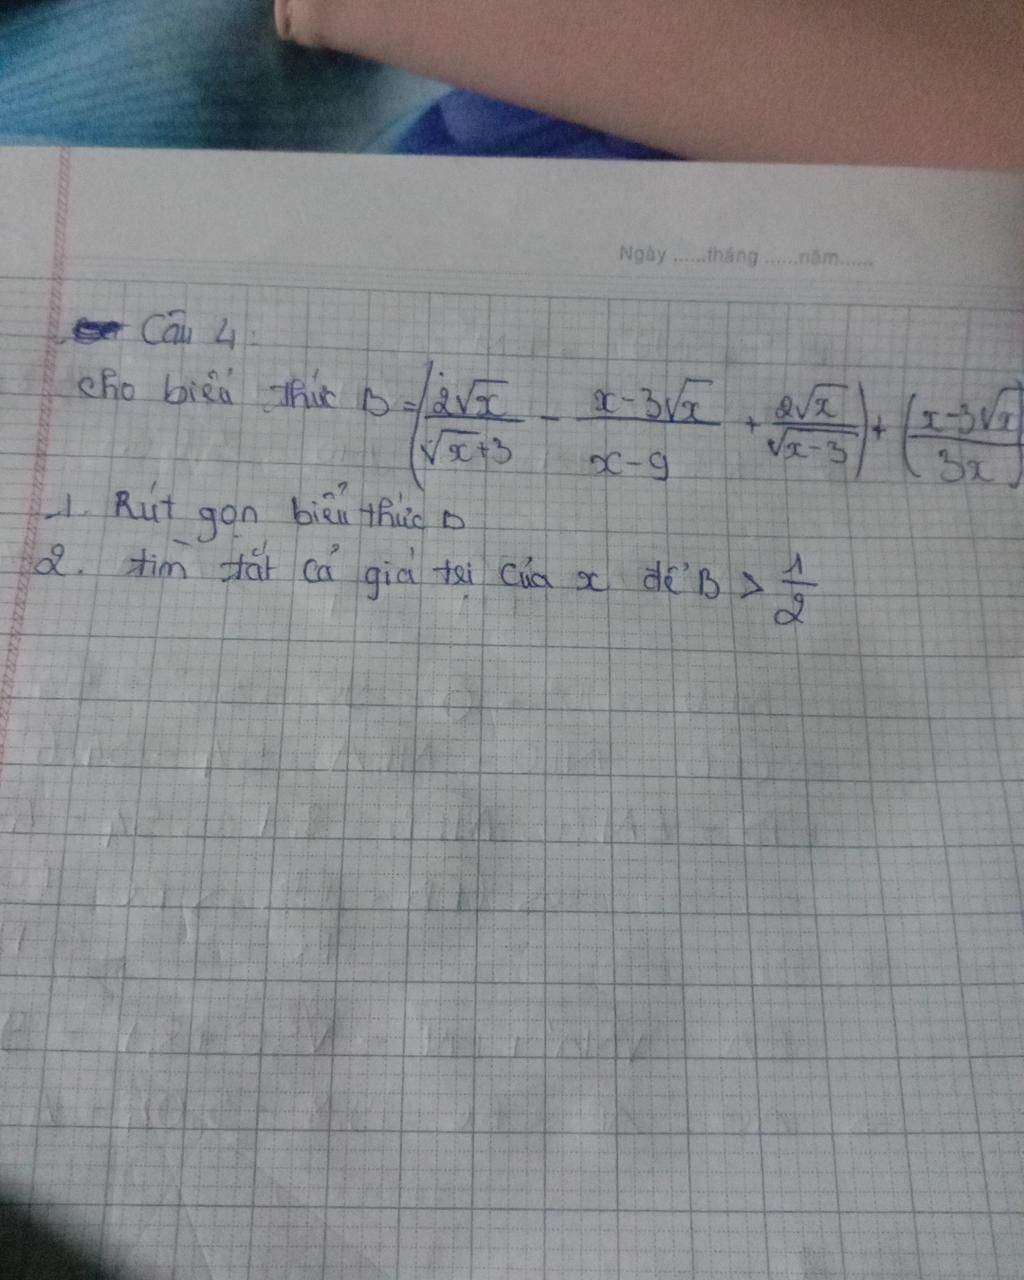 Ngày ......tháng ......năm......
Câu 4:
cho biểu thức B = (2√x/(√x+3) - (x-3√x)/(x-9) + 2√x/(√x-3)) + ((x-3√x)/3x)
1. Rút gọn biểu thức B
2. tìm tất cả giá trị của x để B > 1/2